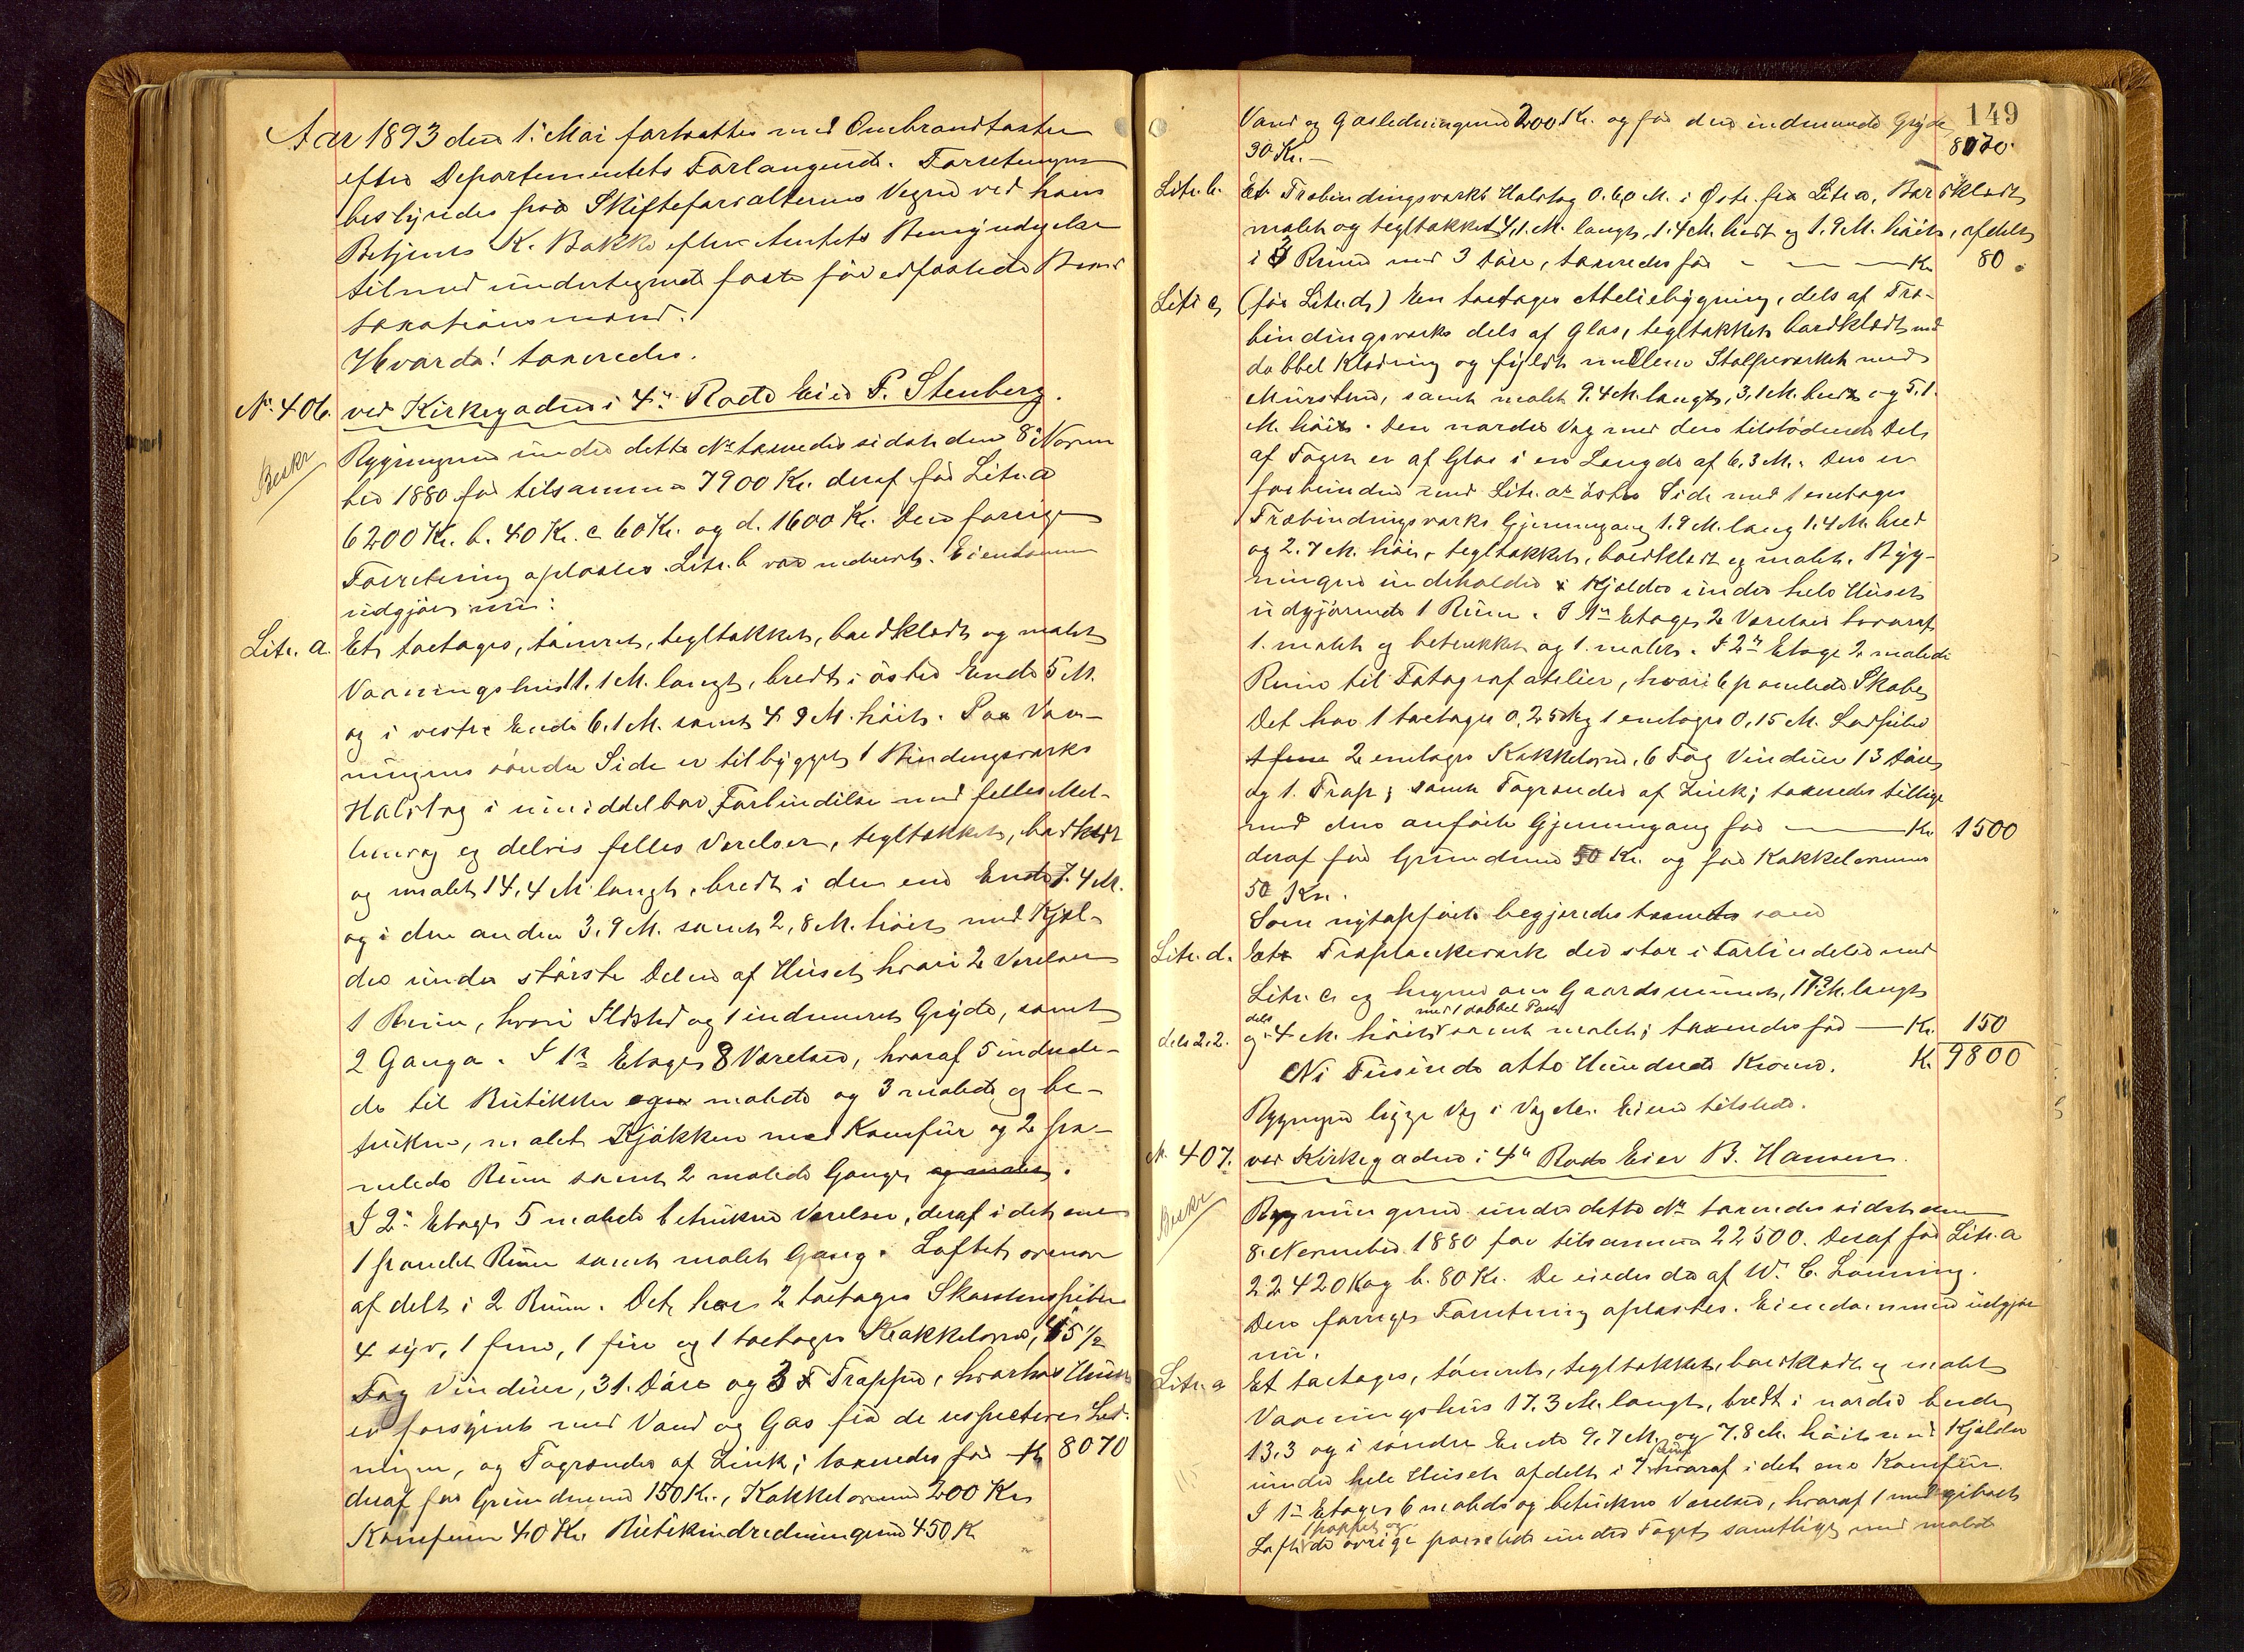 Aar 1893 den 1. Mai fortsattes med Ombrandtaxten
efter Departementets Forlangende. Forretningen
bestyredes for Skifteforvalterens Vegne ved hans
Betjent K. Bakke efter Amtets Bemyndigelse
tilmed undertegnede faste før edfæstede Brand
taxationsmænd.
Hvorda! taxeredes.
No. 406. ved Kirkegaden i 4de Rode Eier P. Stenberg.
Bygningerne under dette No taxeredes sidst den 8de Novem
ber 1880 for tilsammen 7900 Kr. deraf for Litr. a
6200 Kr. b. 40 Kr. c 60 Kr. og d. 1600 Kr. Den forrige
Forretning oplæstes. Litr. b var nedrevet. Eiendommen
udgjør nu:
Litr. a. Et toetages, tømret, tegltækket, bordklædt og malet
Vaaningshus 11.1 M. langt, bredt i østre Ende 5 M.
og i vestre Ende 6.1 M. samt 4.9 M. høit. Paa Vaa-
ningens søndre Side er tilbygget 1 Bindingsværks
Halvtag i umiddelbar Forbindelse med fælles Mel-
lemvæg og delvis fælles Værelser, tegltækket, bordklædt
og malet 14,4 M langt, bredt i den ene Ende 7.4 M.
og i den anden 3.9 M. samt 2,8 M. høit med Kjæl-
der under største Delen af Huset hvori 2 Værelser
1 Rum, hvori Ildsted og 1 indmuret Gryde, samt
2 Gange. I 1ste Etage 8 Værelser, hvoraf 5 indrede-
de til Butikker malede og 3 malede og be-
trukne, malet Kjøkken med Komfur og 2 pa-
nelede Rum samt 2 malede Gange og malet.
I 2den Etage 5 malede betrukne Værelser, deraf i det ene
1 panelet Rum samt malet Gang. Loftet ovenover
afdelt i 2 Rum. Det har 2 toetages Skorstenspiber
4 syv, 1 fem, 1 fire og 1 toetages Kakkelovne, 15 1/2
Fag Vinduer, 31. Døre og 3 Trapper, hvorhos Huset
er forsynet med Vand og Gas fra de respective Led-
ninger, og Tagrender af Zink; taxeredes for Kr 8070
deraf for Grundmuren 150 Kr., Kakkelovnene 200 Kr
Komfuren 40 Kr. Butikindredningerne 450 Kr
149
Vand og Gasledningerne 200 Kr. og for den indmurede Gryde
30 Kr. — 8070
Litr. b. Et Træbindingsværks Halvtag 0.60 M. i Øst fra Litr a, Bordklædt
malet og tegltækket 4,1 M. langt, 1.4 M. bredt og 1.9 M. høit, afdelt
i 3 Rum med 3 Døre, taxeredes for — — — Kr 80
Litr c, (før Litr. d.) Een toetages Atelierbygning, dels af Træ-
bindingsværks dels af Glas, tegltækket bordklædt med
dobbel Klædning og fyldt mellem Stolpeværket med
Mursten, samt malet 9.4 M. langt, 3,1 M. bredt og 5.1.
M. høit. Den nordre Væg med den tilstødende Del
af Taget er af Glas i en Længde af 6,3 M. Den er
forbunden med Litr. a's østre Side med 1 enetages
Træbindingsværks Gjennemgang 1.9 M. lang 1.4 M. bred
og 2.7 M. høi, tegltækket, bordklædt og malet. Byg-
ningen indeholder Kjælder under hele Huset
udgjørende 1 Rum. I 1ste Etage 2 Værelser hvoraf
1. malet og betrukket og 1. malet. I 2den Etage 2 malede
Rum til Fotografatelier, hvori 6 panelede Skabe,
Det har 1 toetages 0,25 og 1 enetages 0,15 M.
2 enetages Kakkelovne, 6 Fag Vinduer 13 Døre
og 1. Trap, samt Tagrender af Zink; taxeredes tillige
med den anførte Gjennemgang for — Kr 1500
deraf for Grundmuren 50 Kr. og for Kakkelovnene
50 Kr.
Som nyopført begjæredes taxeret
Litr. d. Et Træplankeværk der staar i Forbindelse med
Litr. c og hegner om Gaardsrummet, langt
dels 2.2. dels og 4 M. høit med 1 dobbel Port samt malet; taxeredes for — Kr. 150
Ni Tusinde otte Hundrede Kroner. Kr 9800
Bygningen ligger Væg i Væg Eieren tilstede.
N. 407. ved Kirkegaden i 4de Rode Eier B. Hansen.
Bygningerne under dette No taxeredes sidst den
8. November 1880 for tilsammen 22500. Deraf for Litr. a
22420 K og b. 80 Kr. De eiedes da af W. C. Lønning.
Den forrige Forretning oplæstes. Eiendommen udgjør
nu.
Litr. a Et toetages, tømret, tegltækket, bordklædt og malet
Vaaningshus 17.3 M. langt, bredt i nordre Ende
13,3 og i søndre Ende 9,7 M. og 7.8 M. høit med Kjælder
under hele Huset afdelt i 7 Rum hvoraf i det ene Komfur.
I 1ste Etage 6 malede og betrukne Værelser, hvoraf 1 med gibset
Loft 1 pappet og de øvrige panelede under Taget samtlige med malede